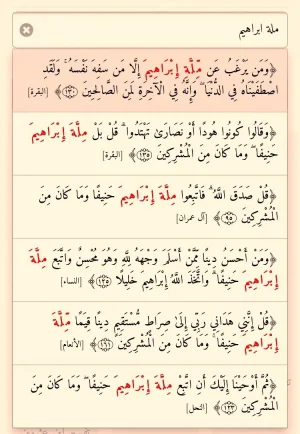 ملة ابراهيم
﴿وَمَن يَرْغَبُ عَن مِّلَّةِ إِبْرَاهِيمَ إِلَّا مَن سَفِهَ نَفْسَهُ ۚ وَلَقَدِ
اصْطَفَيْنَاهُ فِي الدُّنْيَا ۖ وَإِنَّهُ فِي الْآخِرَةِ لَمِنَ الصَّالِحِينَ ﴿١٣٠﴾﴾ [البقرة]
﴿وَقَالُوا كُونُوا هُودًا أَوْ نَصَارَىٰ تَهْتَدُوا ۗ قُلْ بَلْ مِلَّةَ إِبْرَاهِيمَ
حَنِيفًا ۖ وَمَا كَانَ مِنَ الْمُشْرِكِينَ ﴿١٣٥﴾﴾ [البقرة]
﴿قُلْ صَدَقَ اللَّهُ ۗ فَاتَّبِعُوا مِلَّةَ إِبْرَاهِيمَ حَنِيفًا وَمَا كَانَ مِنَ
الْمُشْرِكِينَ ﴿٩٥﴾﴾ [آل عمران]
﴿وَمَنْ أَحْسَنُ دِينًا مِّمَّنْ أَسْلَمَ وَجْهَهُ لِلَّهِ وَهُوَ مُحْسِنٌ وَاتَّبَعَ مِلَّةَ
إِبْرَاهِيمَ حَنِيفًا ۗ وَاتَّخَذَ اللَّهُ إِبْرَاهِيمَ خَلِيلًا ﴿١٢٥﴾﴾ [النساء]
﴿قُلْ إِنَّنِي هَدَانِي رَبِّي إِلَىٰ صِرَاطٍ مُّسْتَقِيمٍ دِينًا قِيَمًا مِّلَّةَ
إِبْرَاهِيمَ حَنِيفًا ۚ وَمَا كَانَ مِنَ الْمُشْرِكِينَ ﴿١٦١﴾﴾ [الأنعام]
﴿ثُمَّ أَوْحَيْنَا إِلَيْكَ أَنِ اتَّبِعْ مِلَّةَ إِبْرَاهِيمَ حَنِيفًا ۖ وَمَا كَانَ مِنَ
الْمُشْرِكِينَ ﴿١٢٣﴾﴾ [النحل]